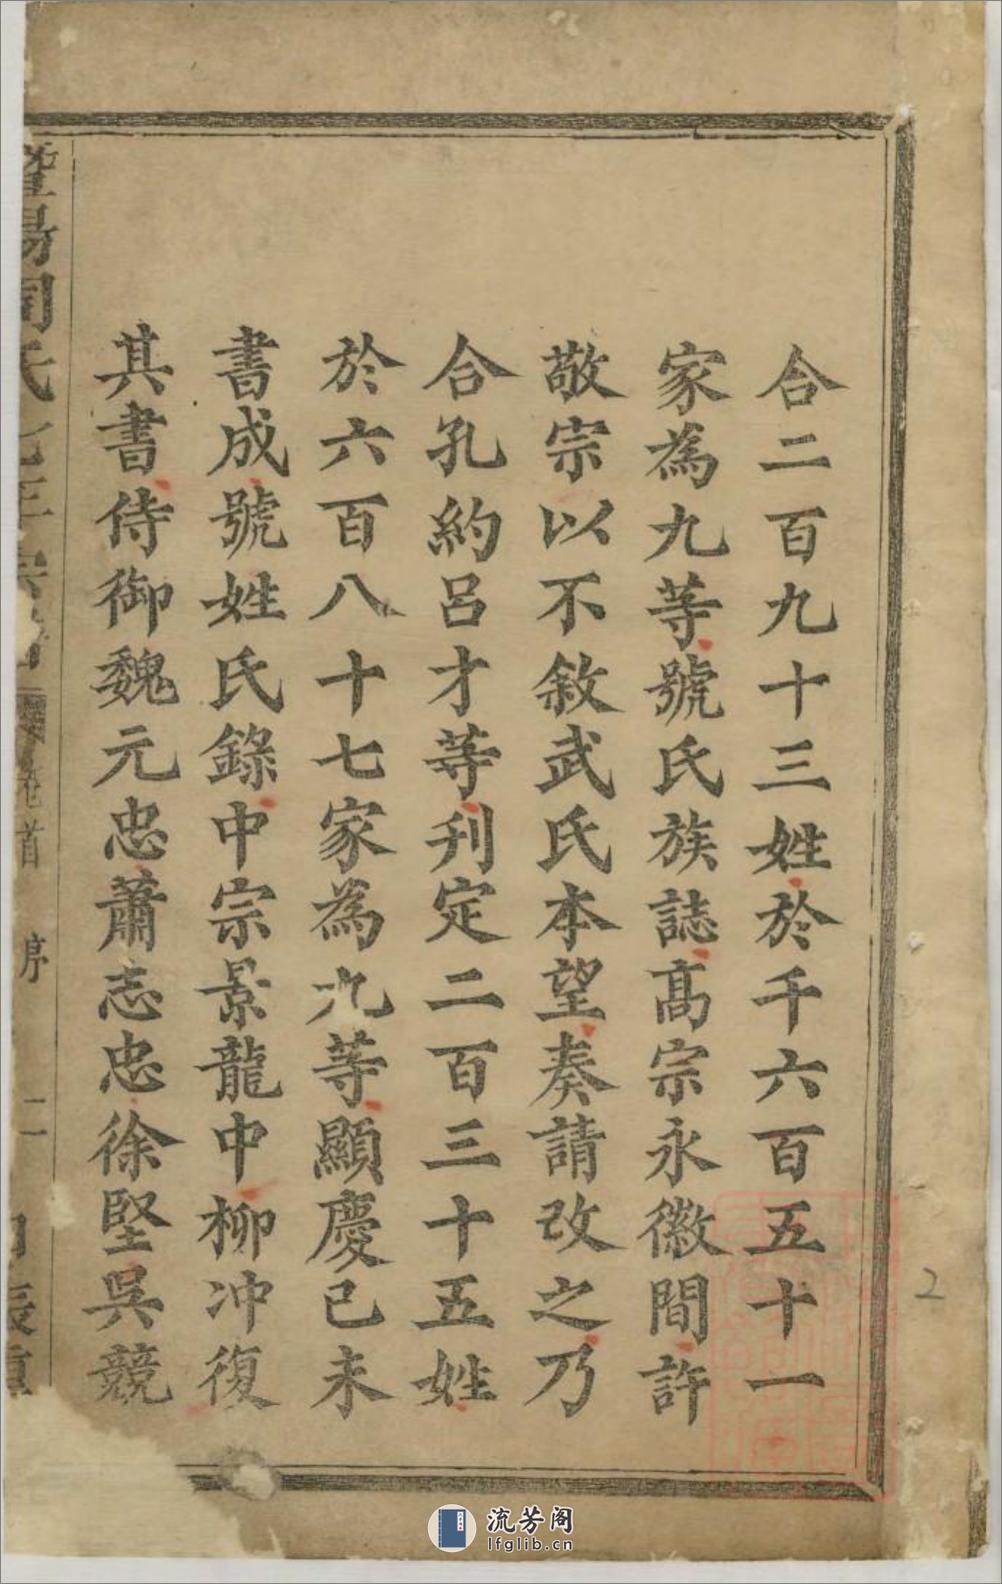 合二百九十三姓於千六百五十一
家為九等號氏族誌高宗永徽間許
敬宗以不敘武氏本望奏請改之乃
合孔約呂才等刋定二百三十五姓
於六百八十七家為九等顯慶已未
書成號姓氏錄中宗景龍中柳冲復
其書侍御魏元忠蕭志忠徐堅吳競
暨陽
氏
首
序
二
2
流芳阁
lfglib.cn